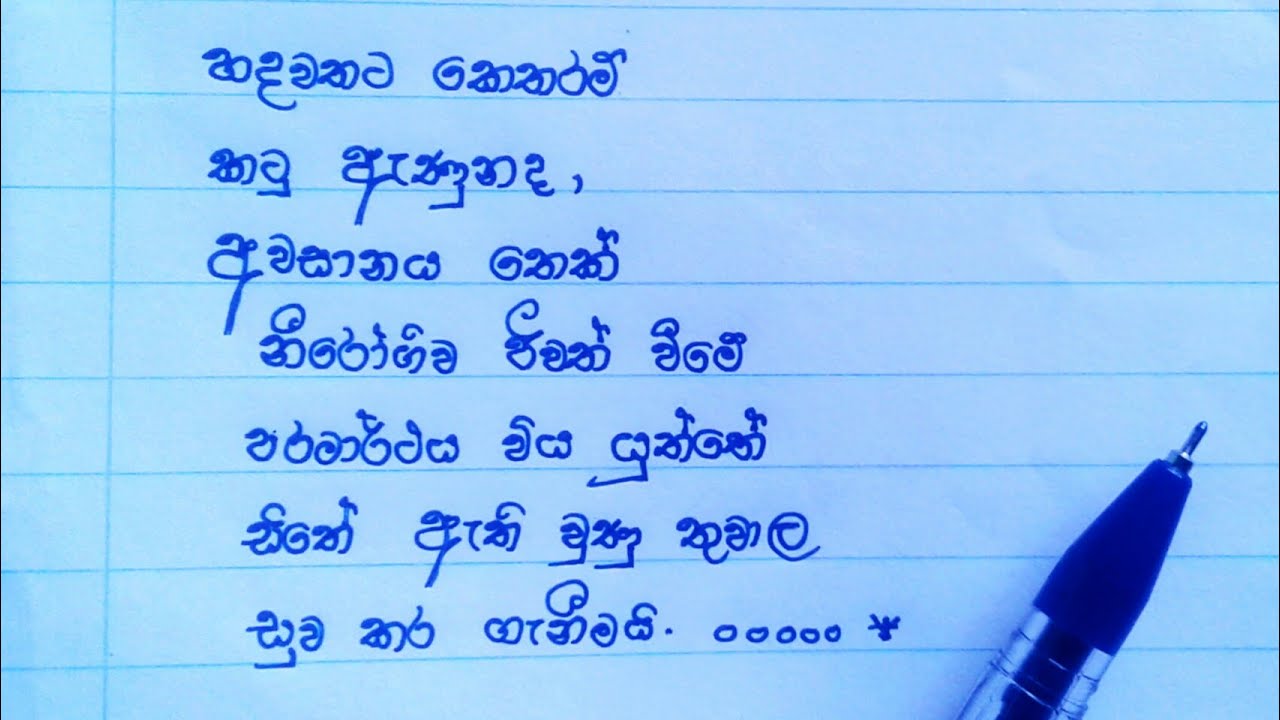 හදවතකට කෙතරම්
කටු ඇණුනද,
අවසානය තෙක්
නීරෝගීව ජීවත් වීමේ
පරමාර්ථය විය යුත්තේ
සිතේ ඇති වුණු තුවාල
සුව කර ගැනීමයි. ooooo *